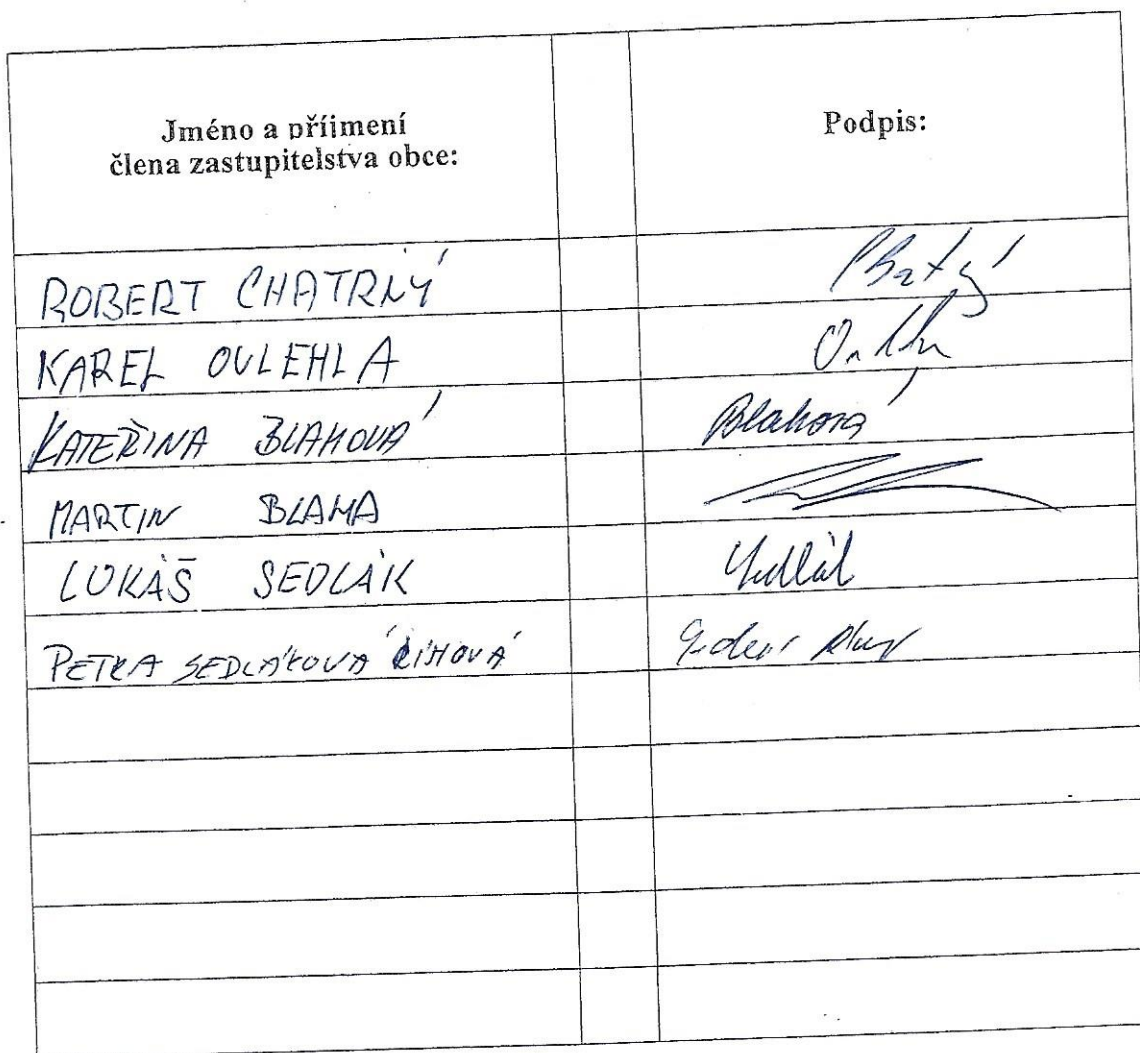 Jméno a příjmení
člena zastupitelstva obce:
Podpis:
ROBERT CHATRNÝ
KAREL OULEHLA
KATEŘINA BLAHOVÁ Blahová
MARTIN BLAHA
LUKÁŠ SEDLÁK Sedlák
PETRA SEDLÁKOVÁ ŘÍHOVÁ